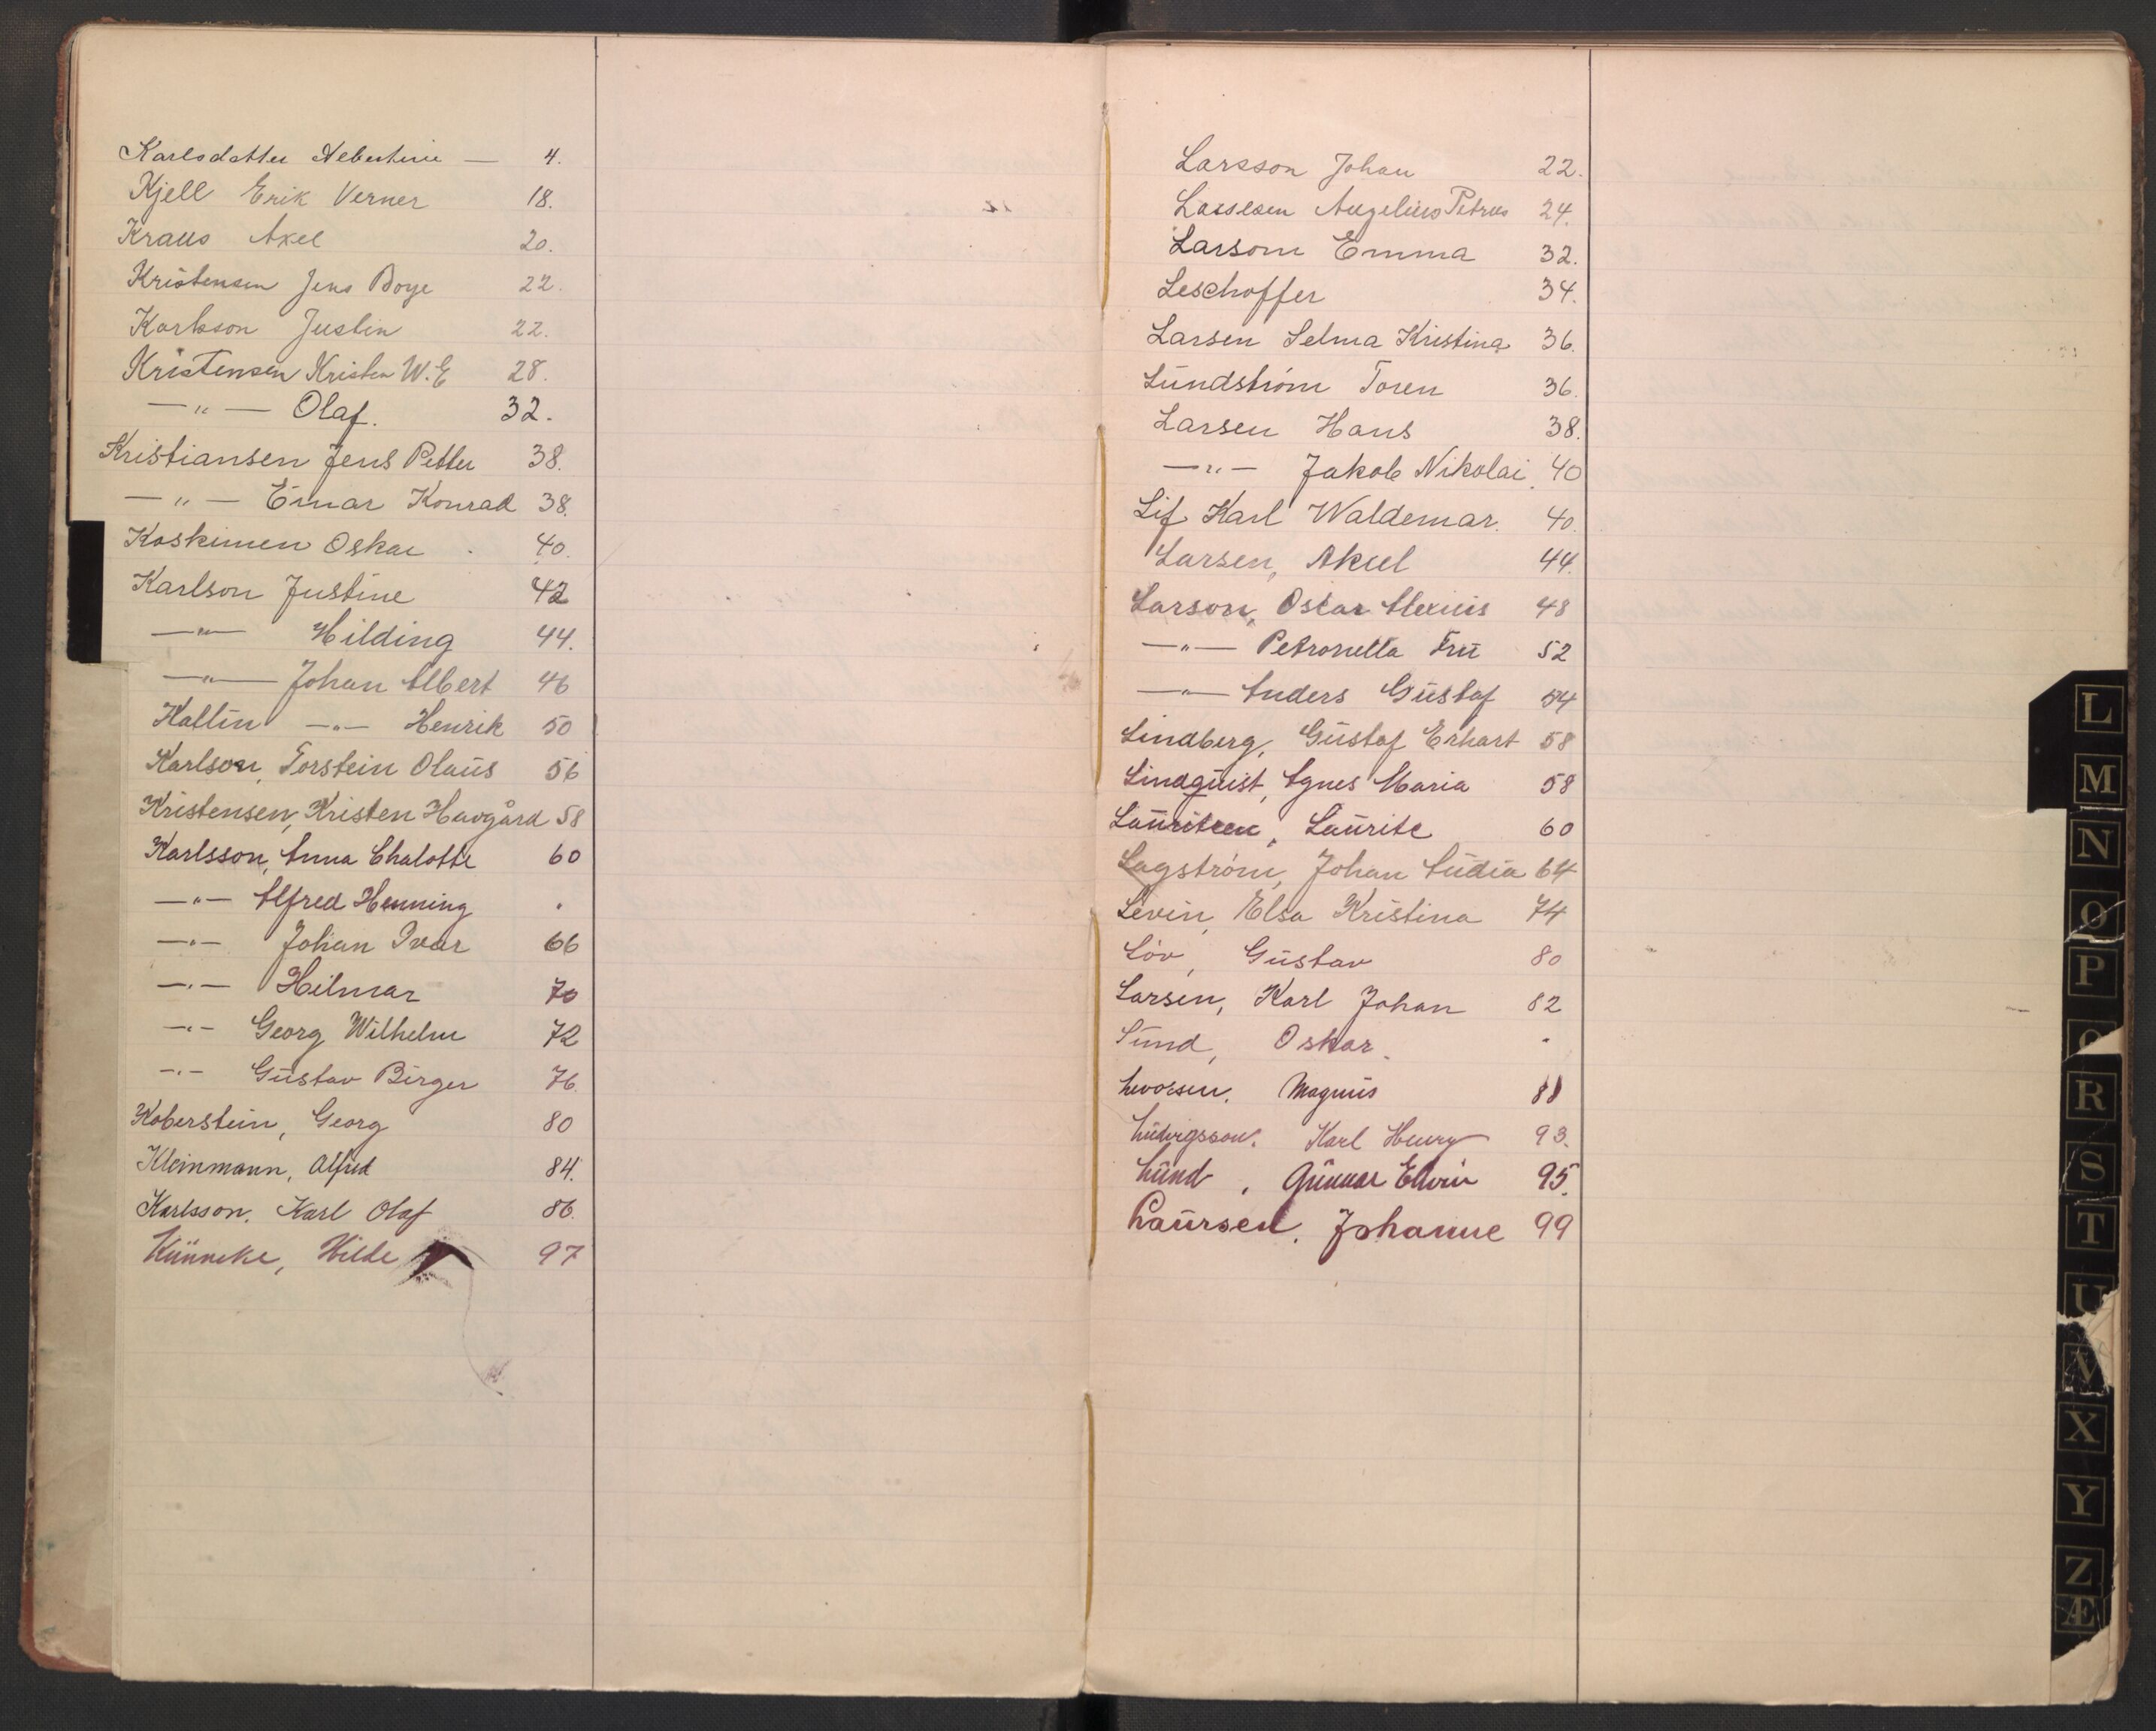 Karlsdatter Albertine — 4.
Kjell Erik Verner 18.
Kraus Axel 20.
Kristensen Jens Boye 22.
Karlsson Justin 22.
Kristensen Kristen W.E 28.
—"— Olaf. 32.
Kristiansen Jens Petter 38.
—"— Einar Konrad 38.
Koskinen Oskar 40.
Karlson Justine 42
—"— Hilding 44.
—"— Johan Albert 46
Kallin —"— Henrik 50
Karlson, Torstein Olaus 56
Kristensen, Kristen Havgård 58
Karlsson, Anna Chalotte 60
—"— Alfred Henning "
—"— Johan Ivar 66
—"— Hilmar 70
—"— Georg Wilhelm 72
—"— Gustav Birger 76.
Koberstein, Georg 80
Kleinmann, Alfred 84.
Karlsson, Karl Olaf 86.
Künneke, Hilde 97
Larsson Johan 22.
Lassesen Angelius Petrus 24.
Larsom Emma 32.
Leschoffer 34.
Larsen Selma Kristina 36.
Lundström Toren 36.
Larsen Hans 38.
—"— Jakob Nikolai 40
Lif Karl Waldemar. 40.
Larsen, Aksel 44.
Larson, Oscar Alexius 48
—"— Petronella Fru 52
—"— Anders Gustaf 54
Lindberg, Gustaf Erhart 58
Lindquist, Agnes Maria 58
Lauritsen, Laurits 60
Lagström, Johan 64
Levin, Elsa Kristina 74
Löv, Gustav 80
Larsen, Karl Johan 82
Lund, Oskar. "
Levorsen. Magnus 88
Ludvigsson. Karl Henry 93.
Lund, Gunnar Edvin 95.
Laursen. Johanne 99
L
M
N
O
P
Q
R
S
T
U
V
X
Y
Z
Æ